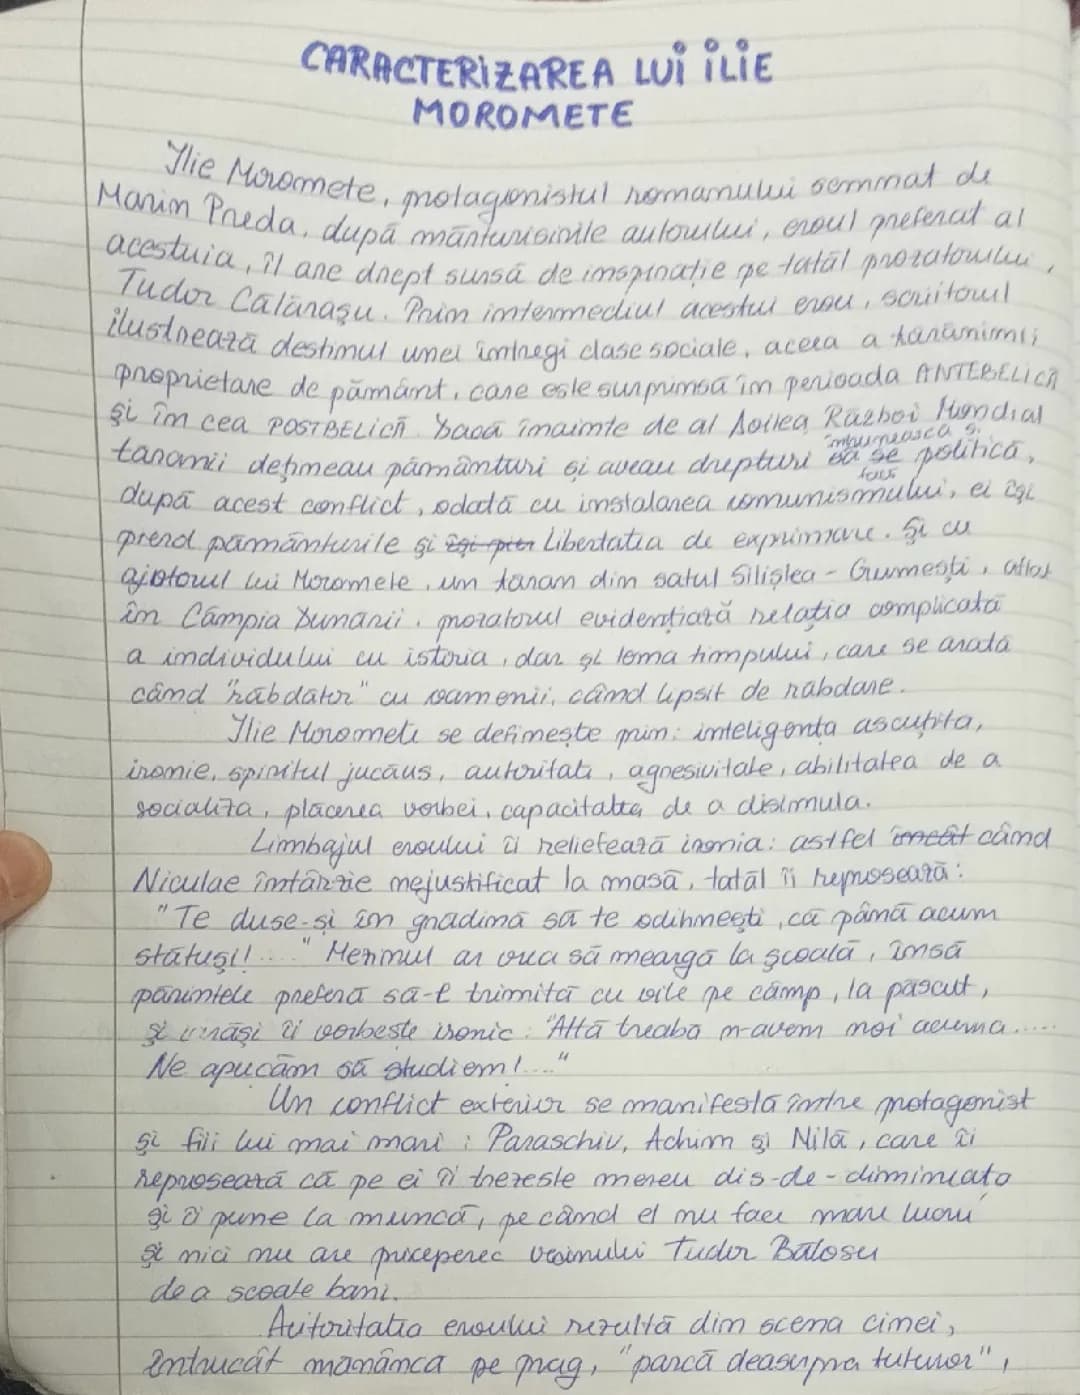 CARACTERIZAREA LUI ILIE
MOROMETE
Ilie Moromete, protagonistul romanului semnat de
Marin Preda, după mărturisirile autorului, eroul preferat al
acestuia, îl are drept sursă de inspirație pe tatăl prozatorului,
Tudor Călărașu. Prin intermediul acestui erou, scriitorul
ilustrează destinul unei întregi clase sociale, aceea a țărănimii
proprietare de pământ, care este surprinsă în perioada ANTEBELICĂ
și în cea POSTBELICĂ. Dacă înainte de al Doilea Război Mondial
țăranii dețineau pământuri și aveau drepturi să se politică,
după acest conflict, odată cu instalarea comunismului, ei își
pierd pământurile și libertatea de exprimare. Și cu
ajutorul lui Moromete, un țăran din satul Siliștea - Gumești, aflat
în Câmpia Dunării, prozatorul evidențiază relația complicată
a individului cu istoria, dar și tema timpului, care se arată
când "răbdător" cu oamenii, când lipsit de răbdare.
Ilie Moromete se definește prin: inteligența ascuțită,
ironie, spiritul jucăuș, autoritate, agresivitate, abilitatea de a
socializa, plăcerea vorbei, capacitatea de a disimula.
Limbajul eroului îi reliefează ironia: astfel încât când
Niculae întârzie nejustificat la masă, tatăl îi reproșează:
"Te duse-și în grădină să te odihnești, că până acum
stătuși!...." Mezinul ar vrea să meargă la școală, însă
părintele preferă să-l trimită cu oile pe câmp, la păscut,
și îi vorbește ironic: "Altă treabă n-avem noi acuma.....
Ne apucăm să studiem!...."
Un conflict exterior se manifestă între protagonist
și fiii lui mai mari: Paraschiv, Achim și Nilă, care îi
reproșează că pe ei îi trezește mereu dis-de-dimineață
și îi pune la muncă, pe când el nu face mare lucru
și nici nu are priceperea vecinului Tudor Bălosu
de a scoate bani.
Autoritatea eroului rezultă din scena cinei,
întrucât mănâncă pe prag, "parcă deasupra tuturor",